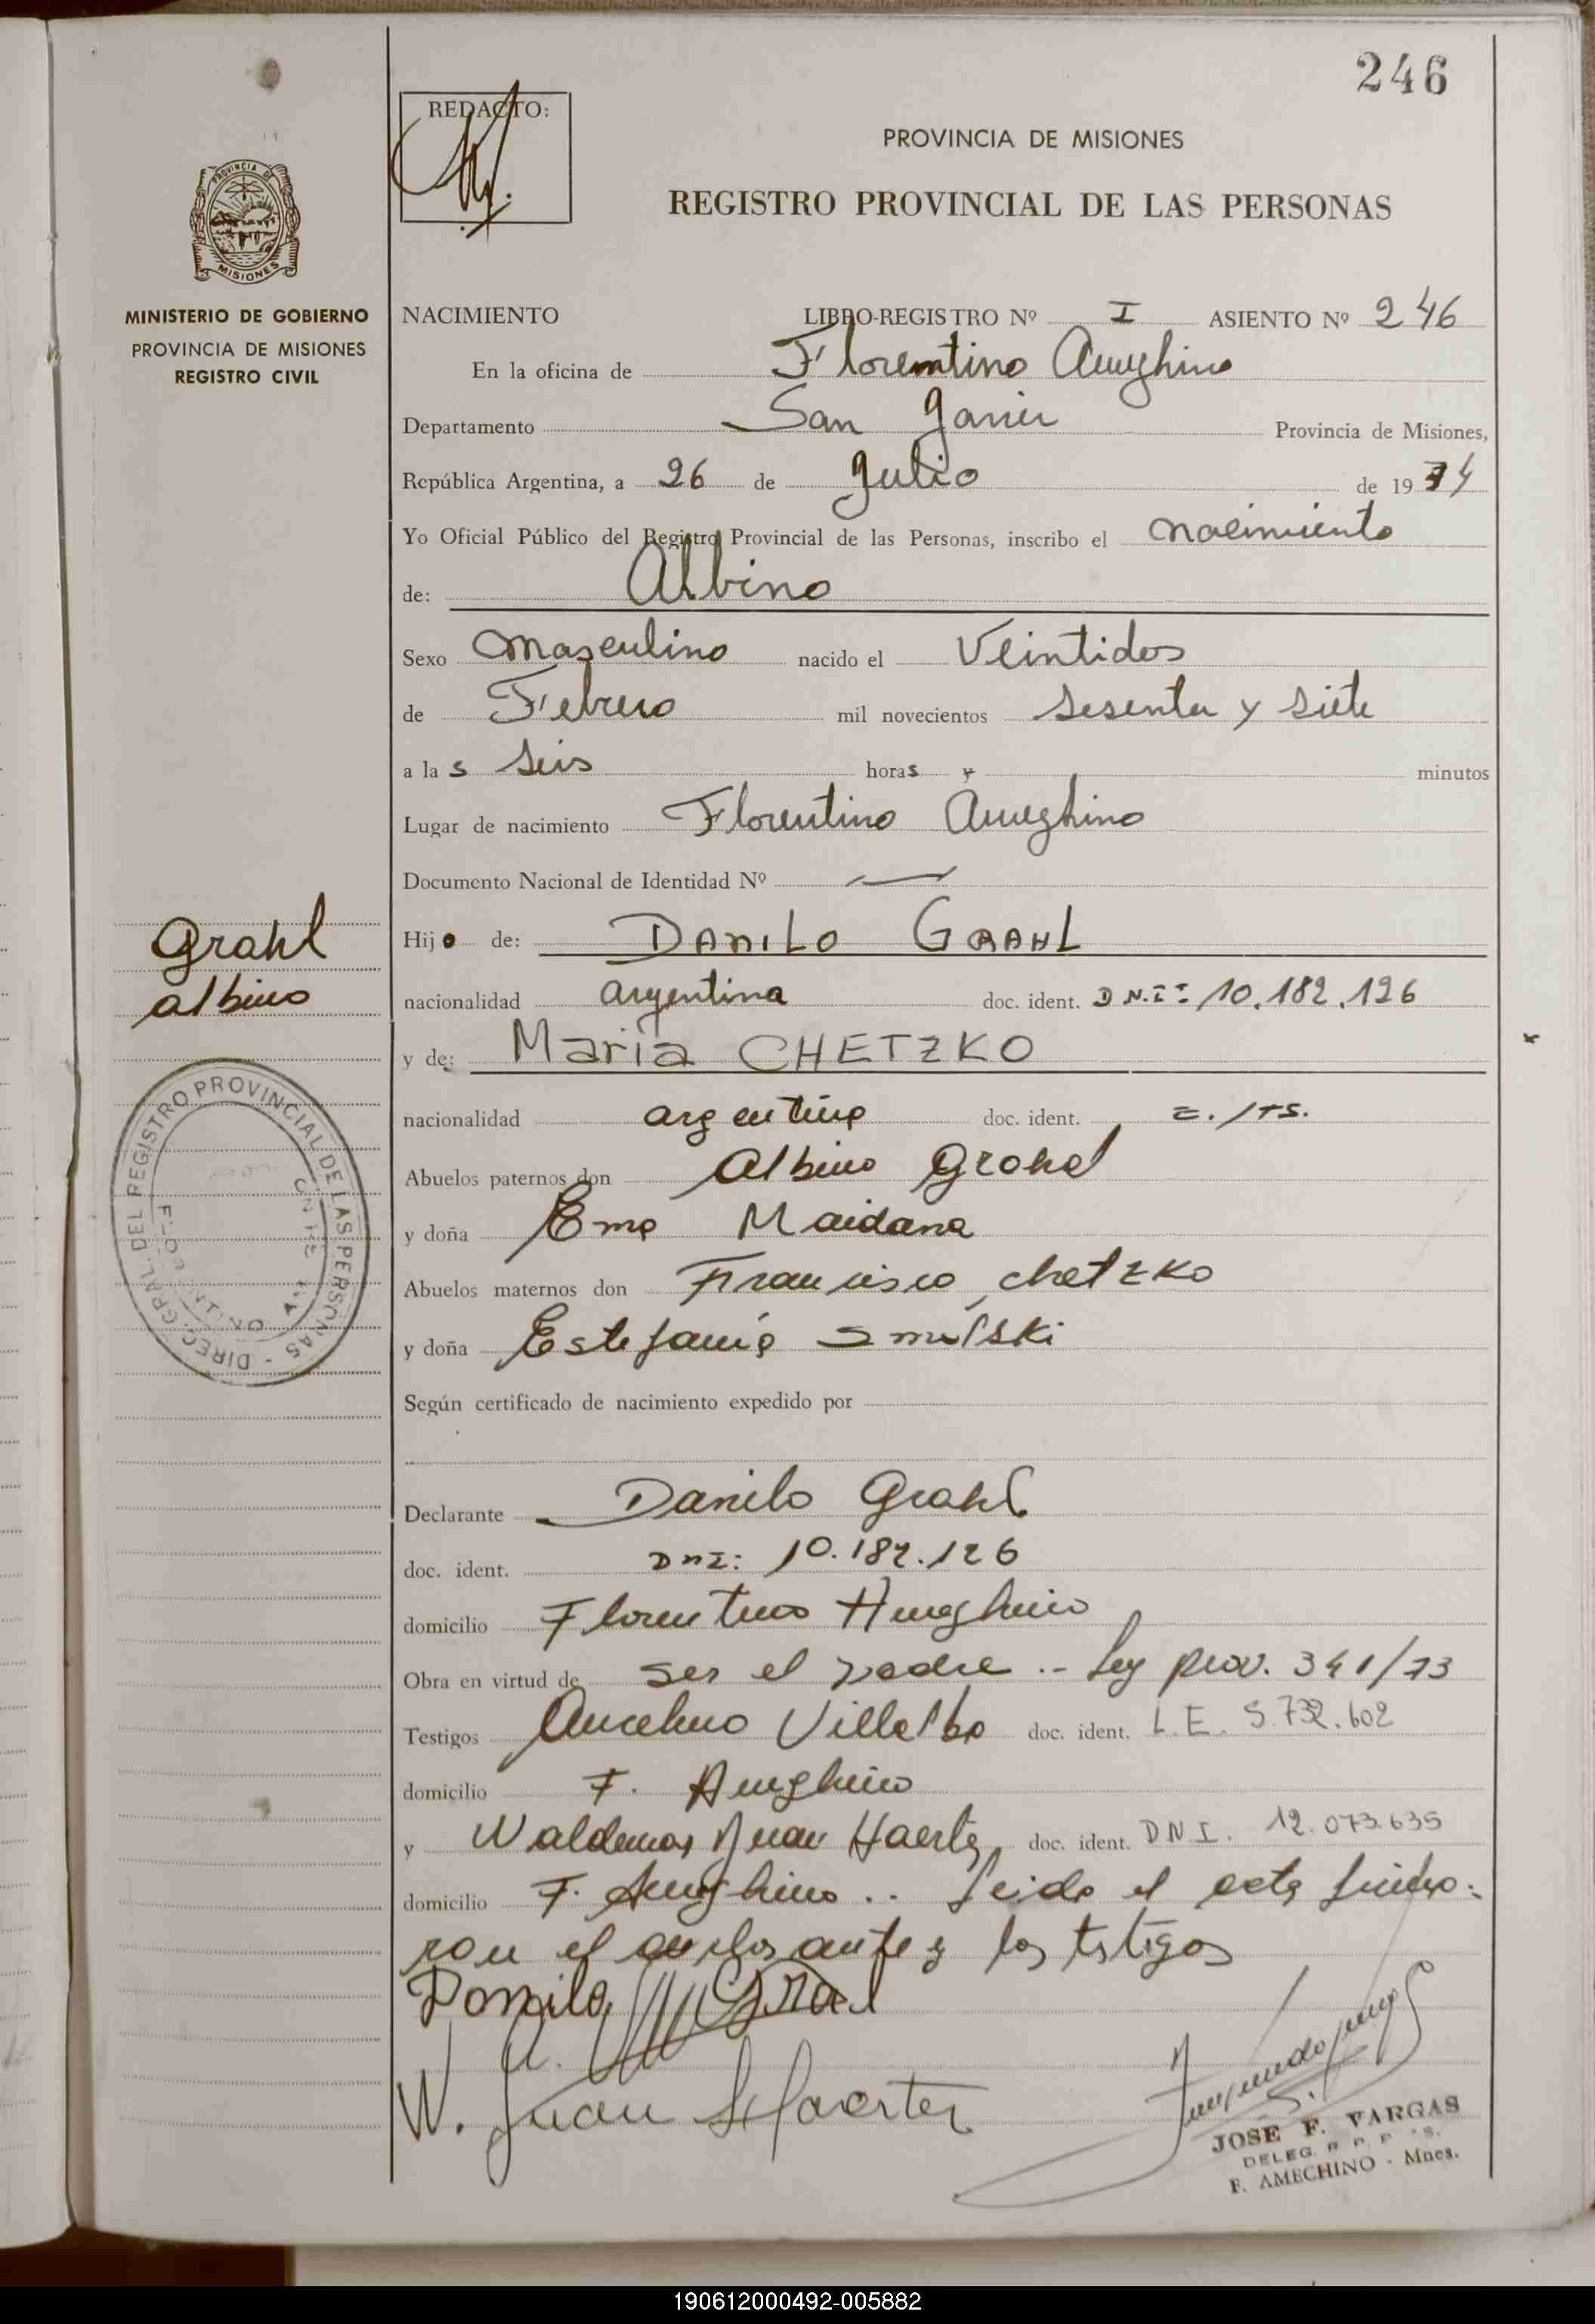 246
REDACTO:
PROVINCIA DE MISIONES
REGISTRO PROVINCIAL DE LAS PERSONAS
PROVINCIA DE
MISIONES
MINISTERIO DE GOBIERNO
PROVINCIA DE MISIONES
REGISTRO CIVIL
NACIMIENTO LIBRO-REGISTRO Nº I ASIENTO Nº 246
En la oficina de Florentino Ameghino
Departamento San Javier Provincia de Misiones,
República Argentina, a 26 de Julio de 1974
Yo Oficial Público del Registro Provincial de las Personas, inscribo el nacimiento
de: Albino
Sexo Masculino nacido el Veintidos
de Febrero mil novecientos sesenta y siete
a las seis horas y minutos
Lugar de nacimiento Florentino Ameghino
Documento Nacional de Identidad Nº —
Grahl
albino
Hijo de: DANILO GRAHL
nacionalidad argentina doc. ident. D.N.I: 10.182.126
y de: Maria CHETZKO
nacionalidad argentina doc. ident.
Abuelos paternos don Albino Grahl
y doña Ema Maidana
Abuelos maternos don Francisco Chetzko
y doña Estefania Smulski
DIREC. GRAL. DEL REGISTRO PROVINCIAL DE LAS PERSONAS
Según certificado de nacimiento expedido por
Declarante Danilo Grahl
doc. ident. DNI: 10.182.126
domicilio Florentino Ameghino
Obra en virtud de ser el padre .- Ley prov. 341/73
Testigos Ancelmo Villalba doc. ident. L.E. 5.732.602
domicilio F. Ameghino
y Waldemar Juan Haerter doc. ident. DNI. 12.073.635
domicilio F. Ameghino .. Leida el acta firma-
ron el declarante y los testigos
Danilo Gral
W. Juan Haerter
JOSE F. VARGAS
DELEG. R. P. P.
F. AMECHINO - Mnes.
190612000492-005882